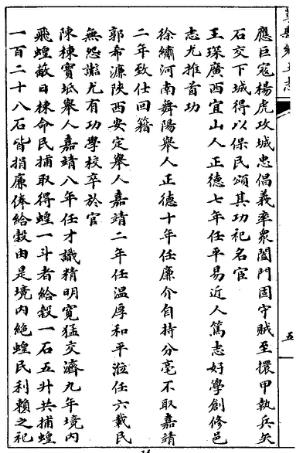 應巨寇楊虎攻城忠倡義率衆闔門固守賊至擐甲執兵矢
石交下城得以保民頌其功祀名宦
王琛廣西宜山人正德七年任平易近人篤志好學創修邑
志尤推首功
徐繡河南舞陽舉人正德十年任廉介自持分毫不取嘉靖
二年致仕回籍
郭希濂陝西安定舉人嘉靖二年任温厚和平涖任六載民
無怨讟尤有功學校卒於官
陳棟寳坻舉人嘉靖八年任才識精明寛猛交濟九年境内
飛蝗敝日棟命民捕取得蝗一斗者給穀一石五升共捕蝗
一百二十八石皆捐廉俸給穀由是境内絶蝗民利賴之祀
五